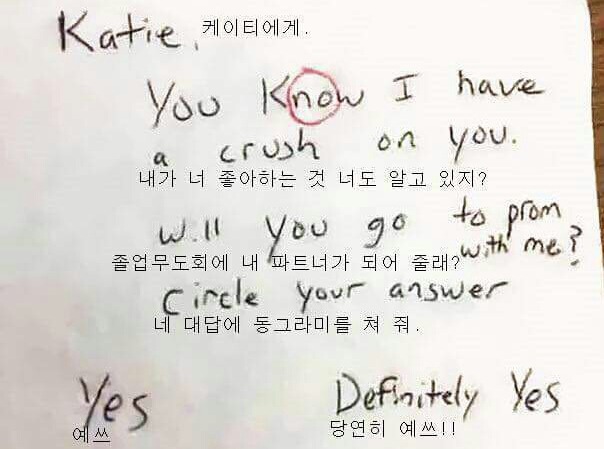 Katie, 케이티에게.
You Know I have
a crush on you.
내가 너 좋아하는 것 너도 알고 있지?
will you go to prom
with me?
졸업무도회에 내 파트너가 되어 줄래?
Circle your answer
네 대답에 동그라미를 쳐 줘.
Yes Definitely Yes
예쓰 당연히 예쓰!!